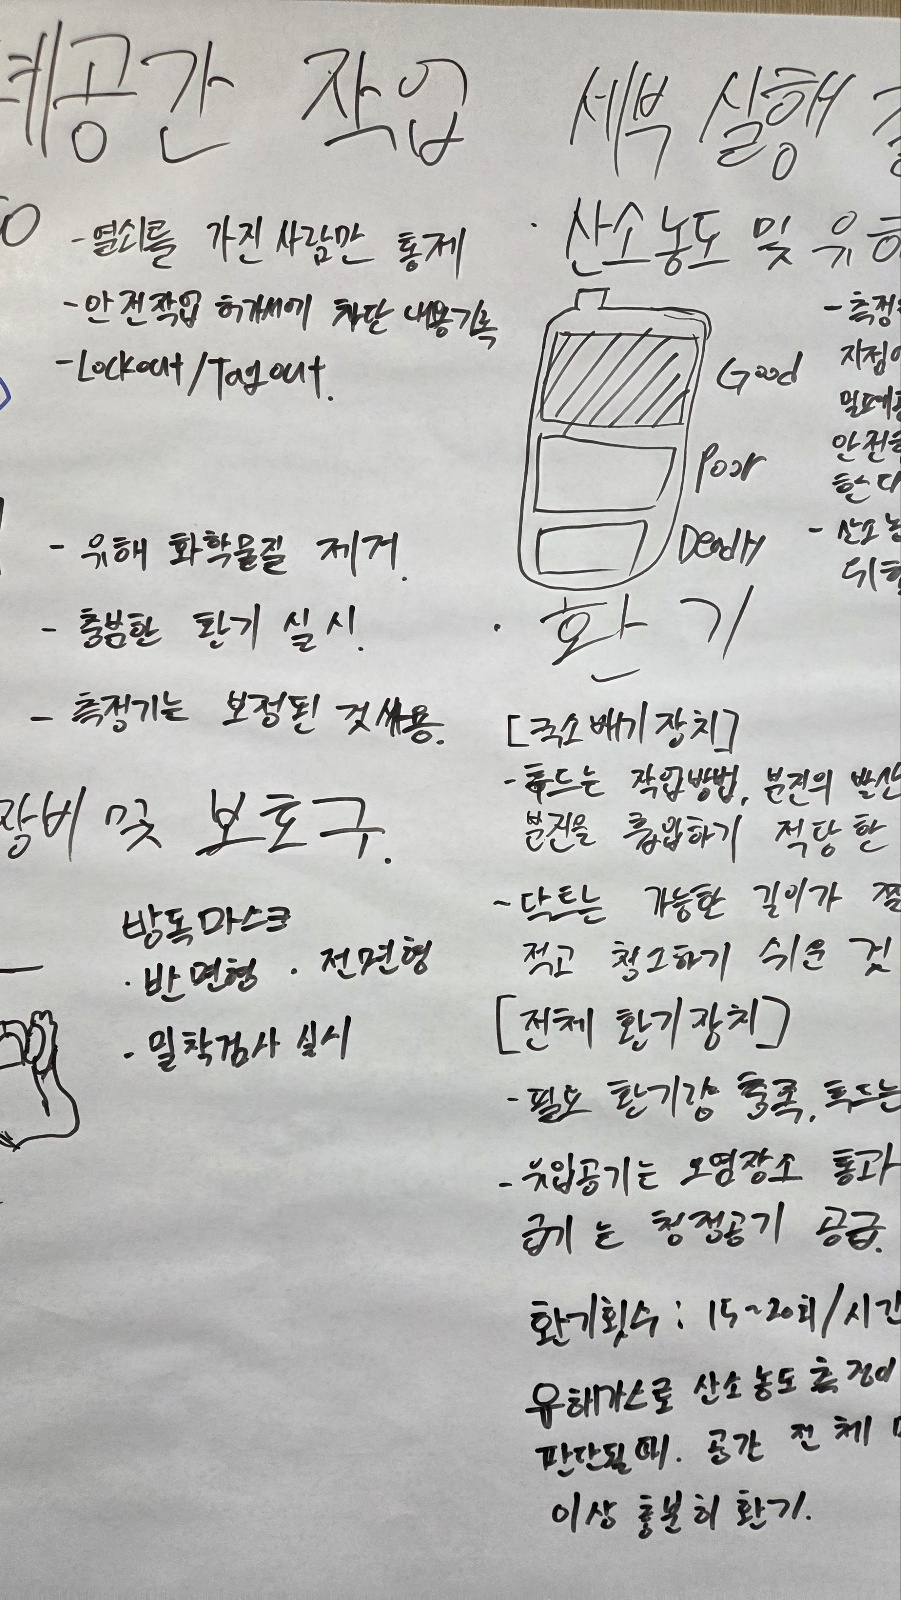 폐공간 작업
- 열쇠를 가진 사람만 통제
- 안전작업 허가서에 차단 내용기록
- Lockout/Tagout.
- 유해 화학물질 제거.
- 충분한 환기 실시.
- 측정기는 보정된 것 사용.
장비 및 보호구.
방독마스크
· 반면형 · 전면형
- 밀착검사 실시
세부 실행
· 산소농도 및 유
Good
Poor
Deadly
- 측정
지점
밀폐공
안전
한다
- 산소농
위험
· 환기
[국소배기장치]
- 후드는 작업방법, 분진의 발산
분진을 흡입하기 적당한
- 닥트는 가능한 길이가 짧
적고 청소하기 쉬운 것
[전체 환기장치]
- 필요 환기량 충족, 후드는
- 유입공기는 오염장소 통과
급기는 청정공기 공급.
환기횟수 : 15~20회/시간
유해가스로 산소농도 측정이
판단될때. 공간 전체
이상 충분히 환기.